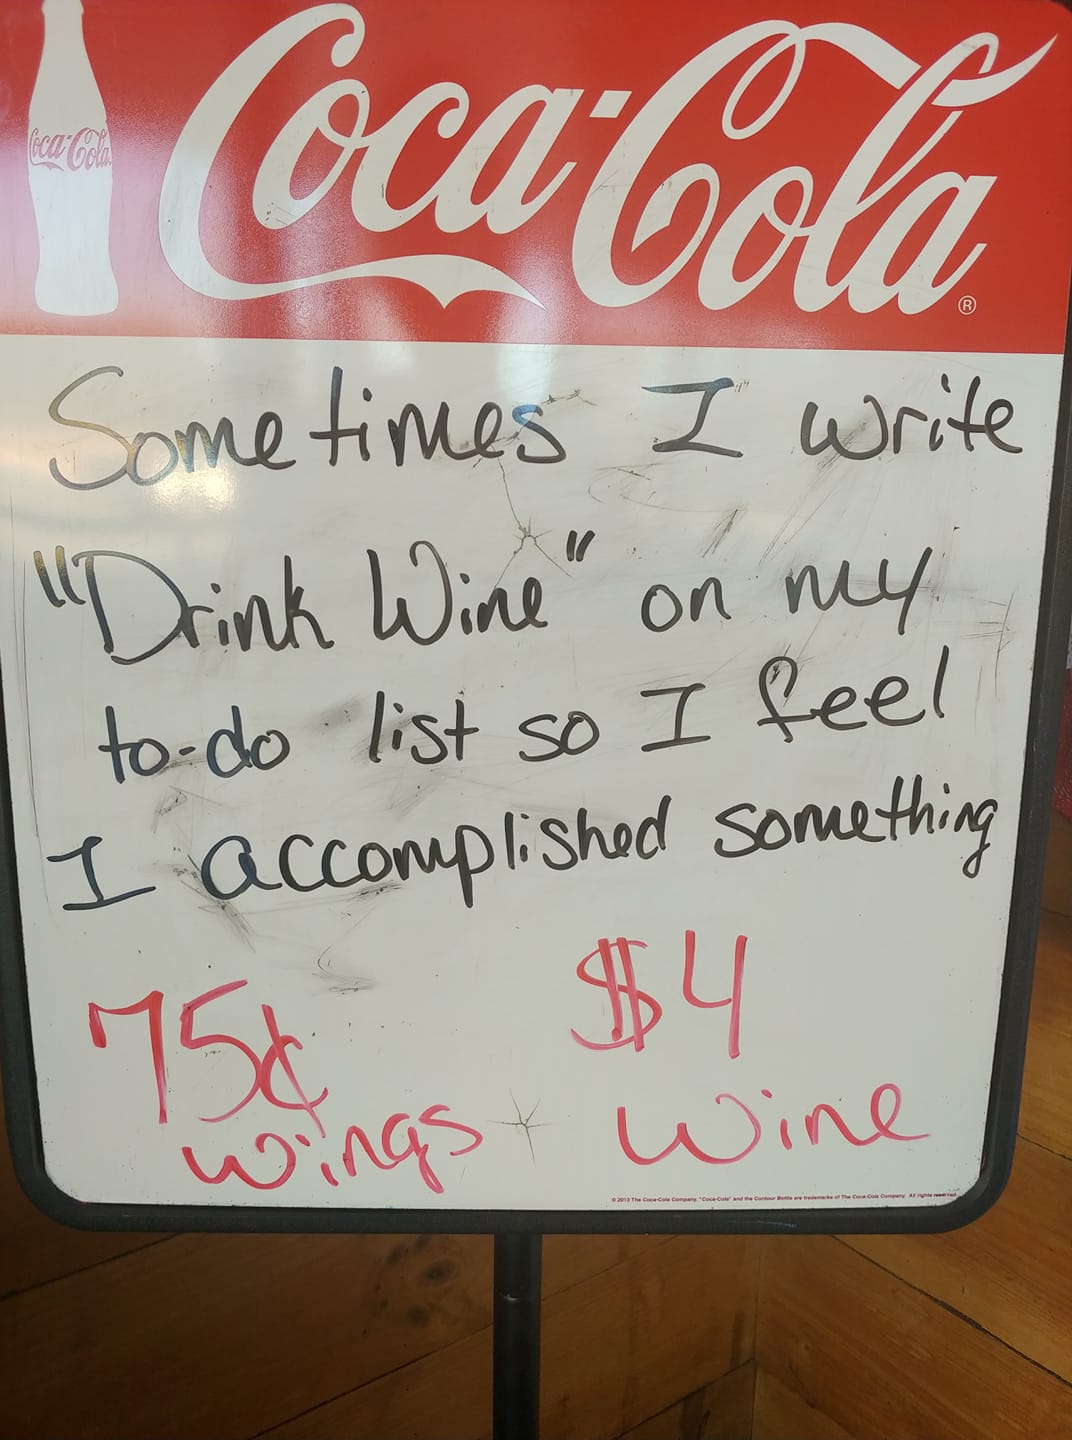 Coca-Cola
Coca-Cola®
Sometimes I write
"Drink Wine" on my
to-do list so I feel
I accomplished something
75¢ $4
wings Wine
© 2013 The Coca-Cola Company. "Coca-Cola" and the Contour Bottle are trademarks of The Coca-Cola Company. All rights reserved.